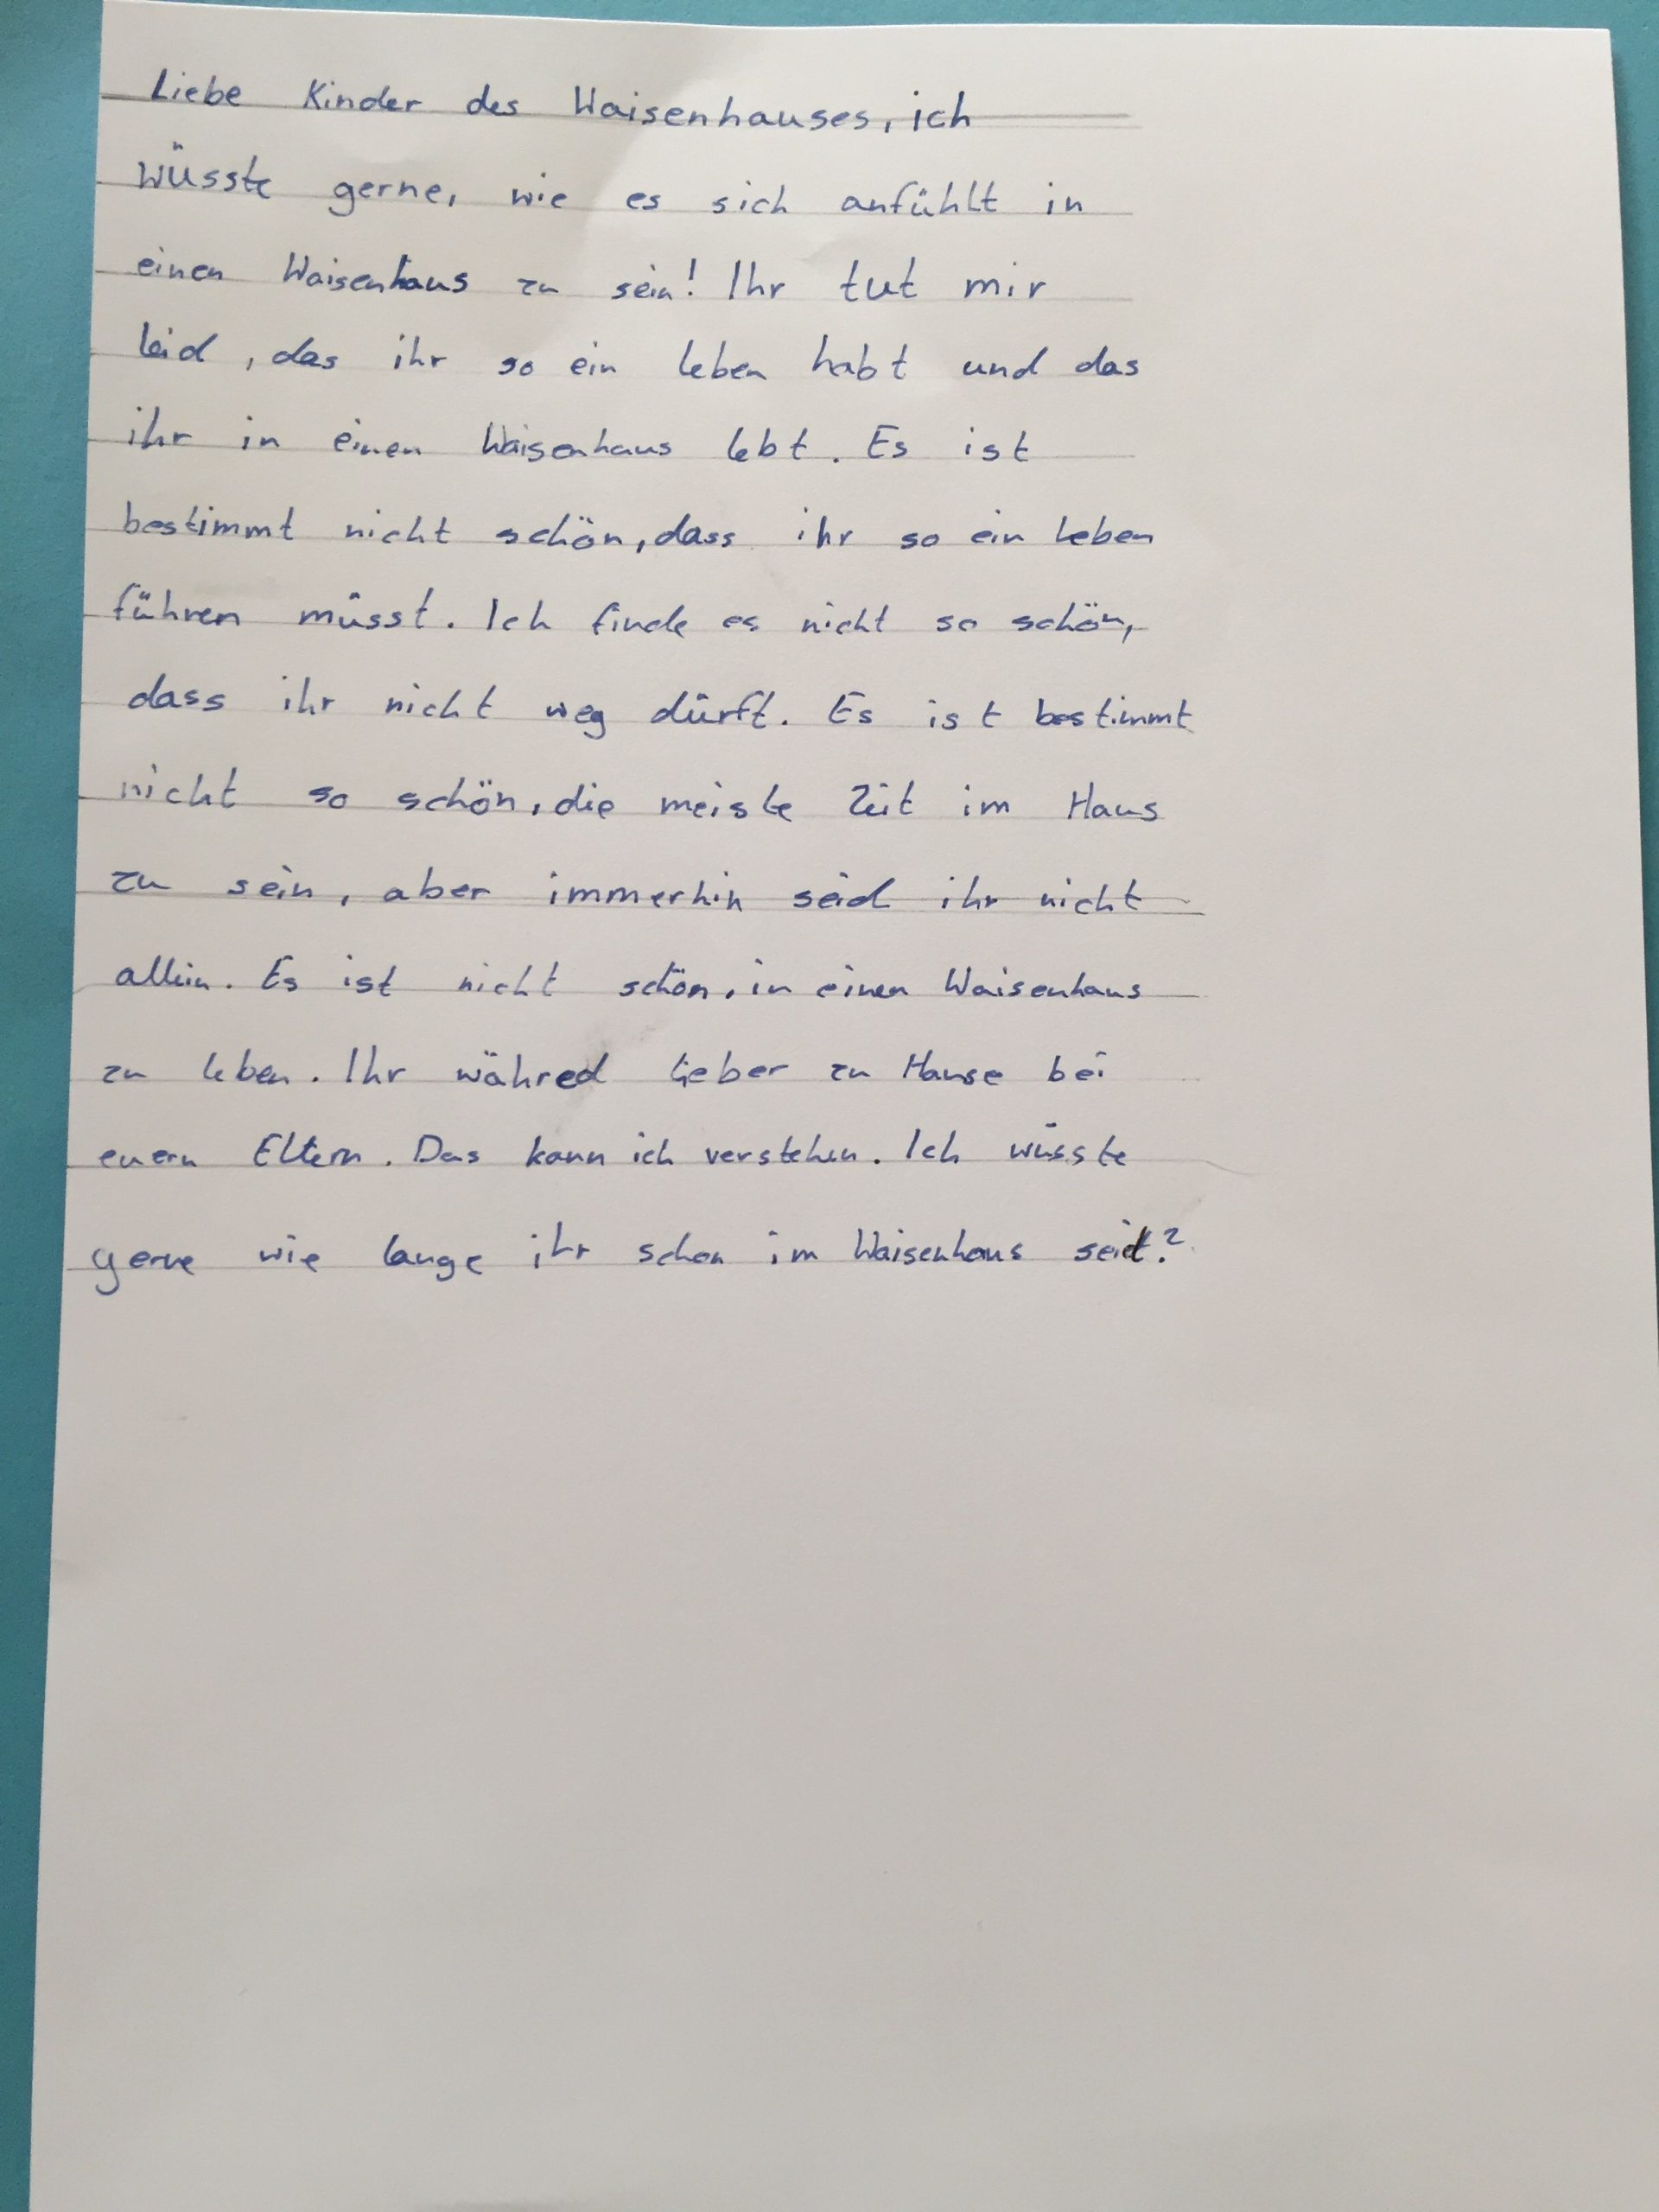 Liebe Kinder des Waisenhauses, ich
wüsste gerne, wie es sich anfühlt in
einen Waisenhaus zu sein! Ihr tut mir
leid, das ihr so ein leben habt und das
ihr in einen Waisenhaus lebt. Es ist
bestimmt nicht schön, dass ihr so ein leben
führen müsst. Ich finde es nicht so schön,
dass ihr nicht weg dürft. Es ist bestimmt
nicht so schön, die meiste Zeit im Haus
zu sein, aber immerhin seid ihr nicht
allein. Es ist nicht schön, in einen Waisenhaus
zu leben. Ihr währed lieber zu Hause bei
euern Eltern. Das kann ich verstehen. Ich wüsste
gerne wie lange ihr schon im Waisenhaus seit?